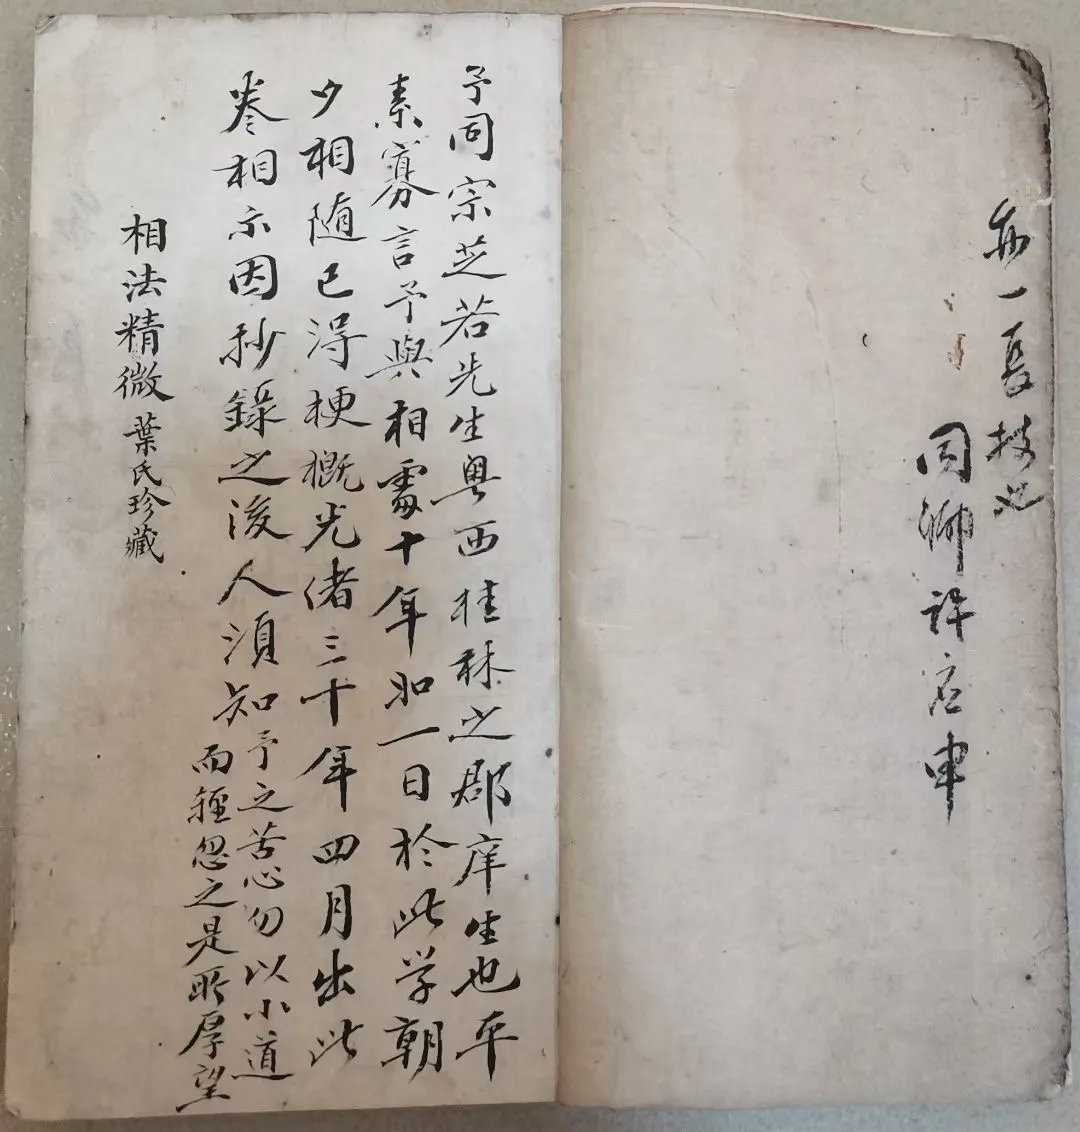 亦一長技也
同鄉許应申
予同宗芝若先生粤西桂林之郡庠生也平
素寡言予與相處十年如一日於此学朝
夕相随已得梗概光绪三十年四月出此
卷相示因抄錄之後人須知予之苦心勿以小道
而輕忽之是所厚望
相法精微葉氏珍藏